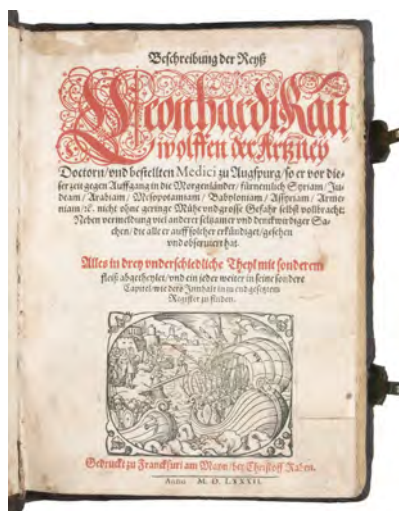 Beschreibung der Reyß
Leonhardi Rau
wolffen der Artzney
Doctorn/vnd bestellten Medici zu Augspurg/so er vor die-
ser zeit gegen Auffgang in die Morgenländer/fürnemlich Syriam/Ju-
deam/Arabiam/Mesopotamiam/Babyloniam/Assyriam/Arme-
niam/ꝛc. nicht ohne geringe Mühe vnd grosse Gefahr selbst volbracht:
Neben vermeldung viel anderer seltzamer vnd denckwirdiger Sa-
chen/die alle er auff solcher erkündiget/gesehen
vnd obseruiert hat.
Alles in drey vnderschiedliche Theyl mit sonderem
fleiß abgetheylet/vnd ein jeder weiter in seine sondere
Capitel/wie dero Jnnhalt in zu end gesetztem
Register zu finden.
Gedruckt zu Franckfurt am Mayn/bey Christoff Raben.
Anno M. D. LXXXII.